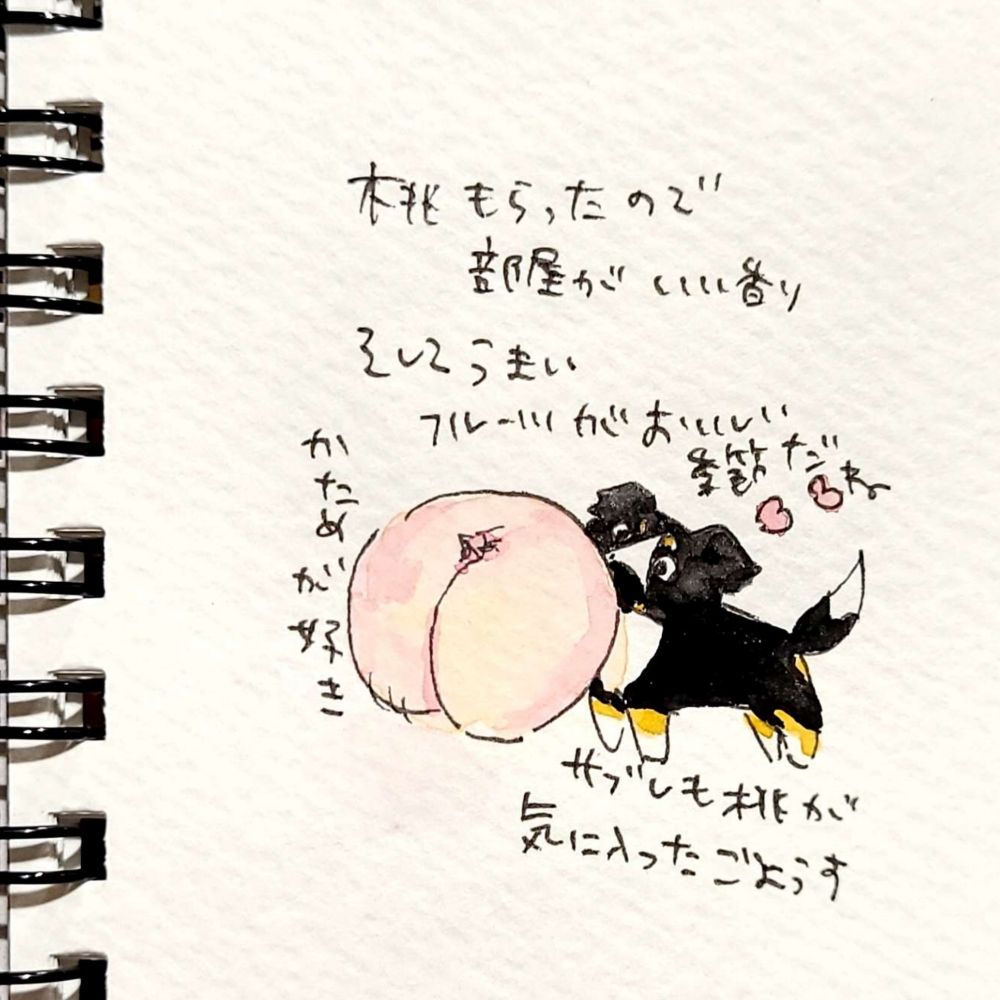 桃もらったので
部屋がいい香り
そしてうまい
フルーツがおいしい
季節だね
かためが好き
サブレも桃が
気に入ったごようす